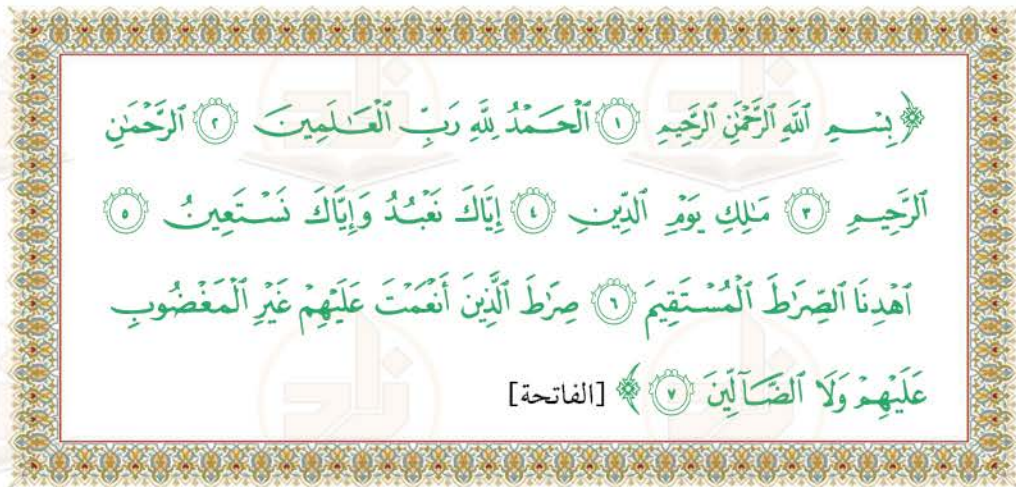 ﴿بِسْمِ ٱللَّهِ ٱلرَّحْمَٰنِ ٱلرَّحِيمِ ۝١ ٱلْحَمْدُ لِلَّهِ رَبِّ ٱلْعَٰلَمِينَ ۝٢ ٱلرَّحْمَٰنِ
ٱلرَّحِيمِ ۝٣ مَٰلِكِ يَوْمِ ٱلدِّينِ ۝٤ إِيَّاكَ نَعْبُدُ وَإِيَّاكَ نَسْتَعِينُ ۝٥
ٱهْدِنَا ٱلصِّرَٰطَ ٱلْمُسْتَقِيمَ ۝٦ صِرَٰطَ ٱلَّذِينَ أَنْعَمْتَ عَلَيْهِمْ غَيْرِ ٱلْمَغْضُوبِ
عَلَيْهِمْ وَلَا ٱلضَّآلِّينَ ۝٧﴾ [الفاتحة]